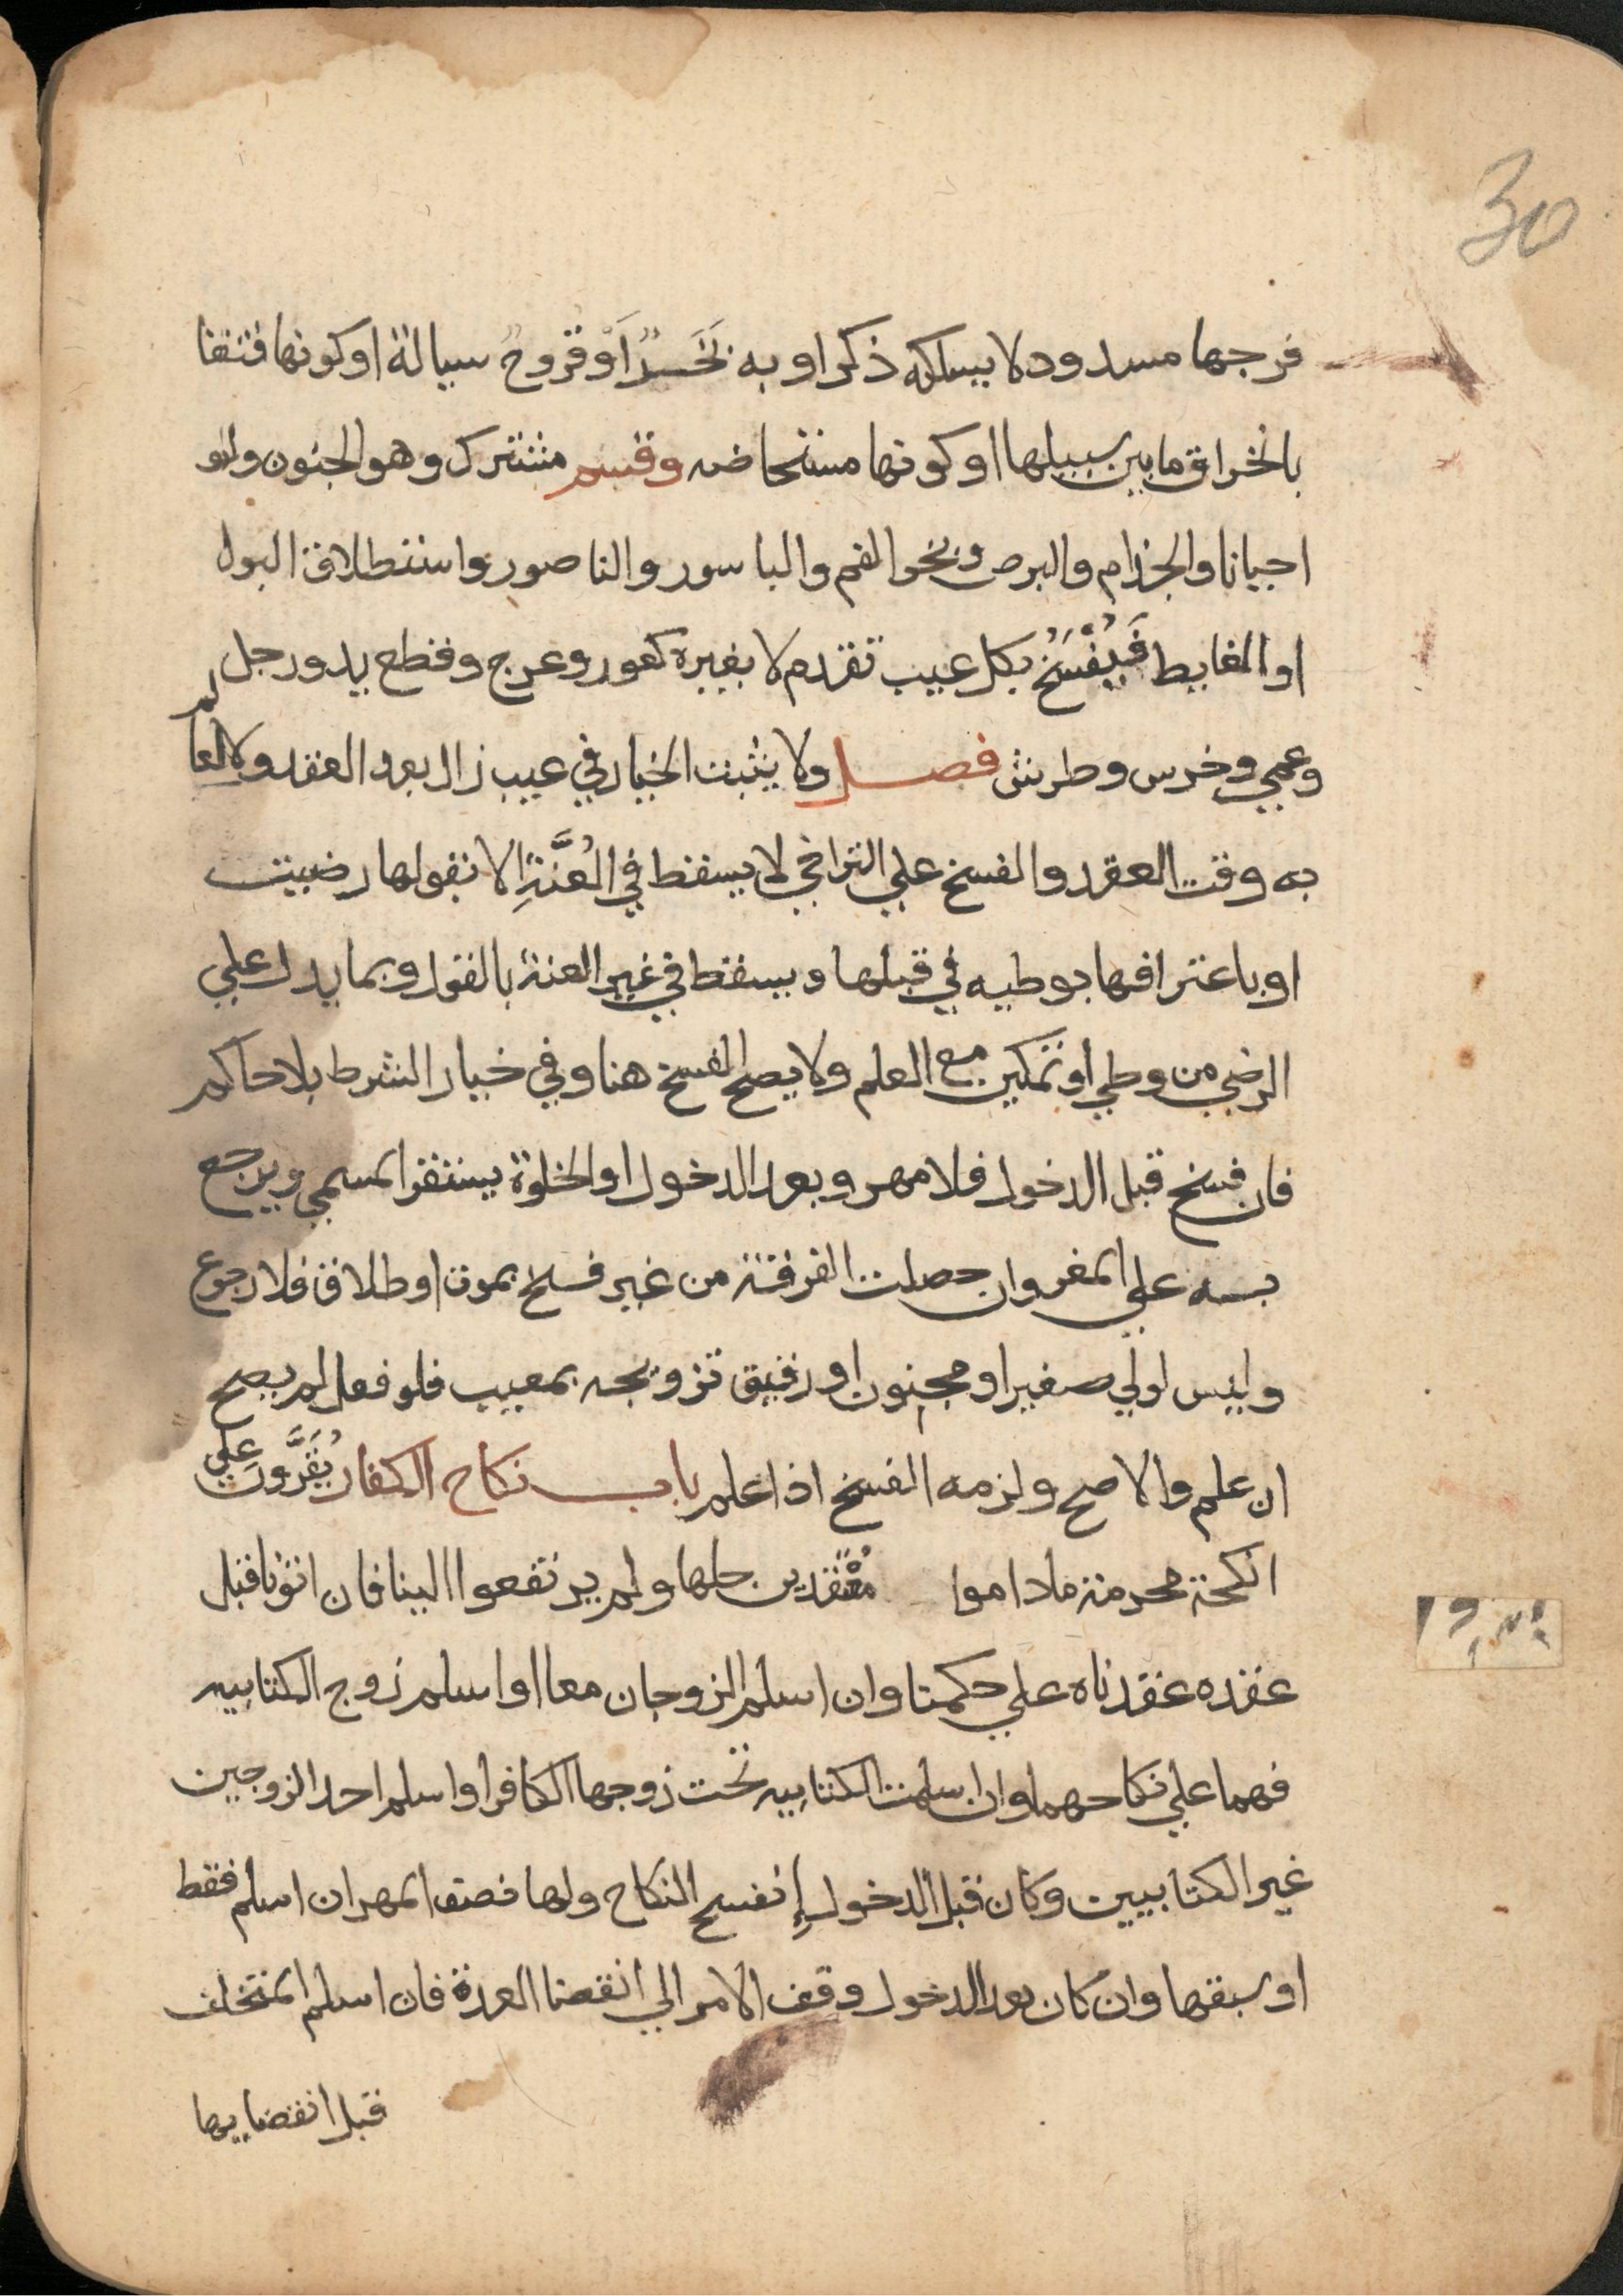 30
فرجها مسدود لا يسلكه ذكر او به بَخَرٌ أَوْ قروحٌ سيالة او كونها فتقا
بانخراق ما بين سبيلها او كونها مستحاضه وقسم مشترك وهو الجنون ولو
احيانا والجذام والبرص وبخر الفم والباسور والناصور واستطلاق البول
او الغايط فَيُفْسَخُ بكل عيب تقدم لا بغيره كعور وعرج وقطع يد ورجل
وعمي وخرس وطرش فصل ولا يثبت الخيار في عيب زال بعد العقد ولا لعالم
به وقت العقد والفسخ علي التراخي لا يسقط في العُنَّةِ الا بقولها رضيت
او باعترافها بوطيه في قبلها ويسقط في غير العنة بالقول وبما يدل علي
الرضي من وطي او تمكين مع العلم ولا يصح الفسخ هنا وفي خيار الشرط بلا حاكم
فان فسخ قبل الدخول فلا مهر وبعد الدخول او الخلوة يستقر المسمي ويرجع
به علي المغر وان حصلت الفرقة من غير فسخ بموت او طلاق فلا رجوع
وليس لولي صغير او مجنون او رقيق تزويجه بمعيب فلو فعل لم يصح
ان علم والا صح ولزمه الفسخ اذا علم باب نكاح الكفار يُقَرَّونَ علي
انكحة محرمة ماداموا مُعْتقدين حلها ولم يرتفعوا الينا فان اتونا قبل
عقده عقدناه علي حكمنا وان اسلم الزوجان معا او اسلم زوج الكتابيه
فهما علي نكاحهما وان اسلمت الكتابيه تحت زوجها الكافر او اسلم احد الزوجين
غير الكتابيين وكان قبل الدخول إنفسح النكاح ولها نصف المهر ان اسلم فقط
او سبقها وان كان بعد الدخول وقف الامر الي انقضا العدة فان اسلم المتخلف
قبل انقضايها